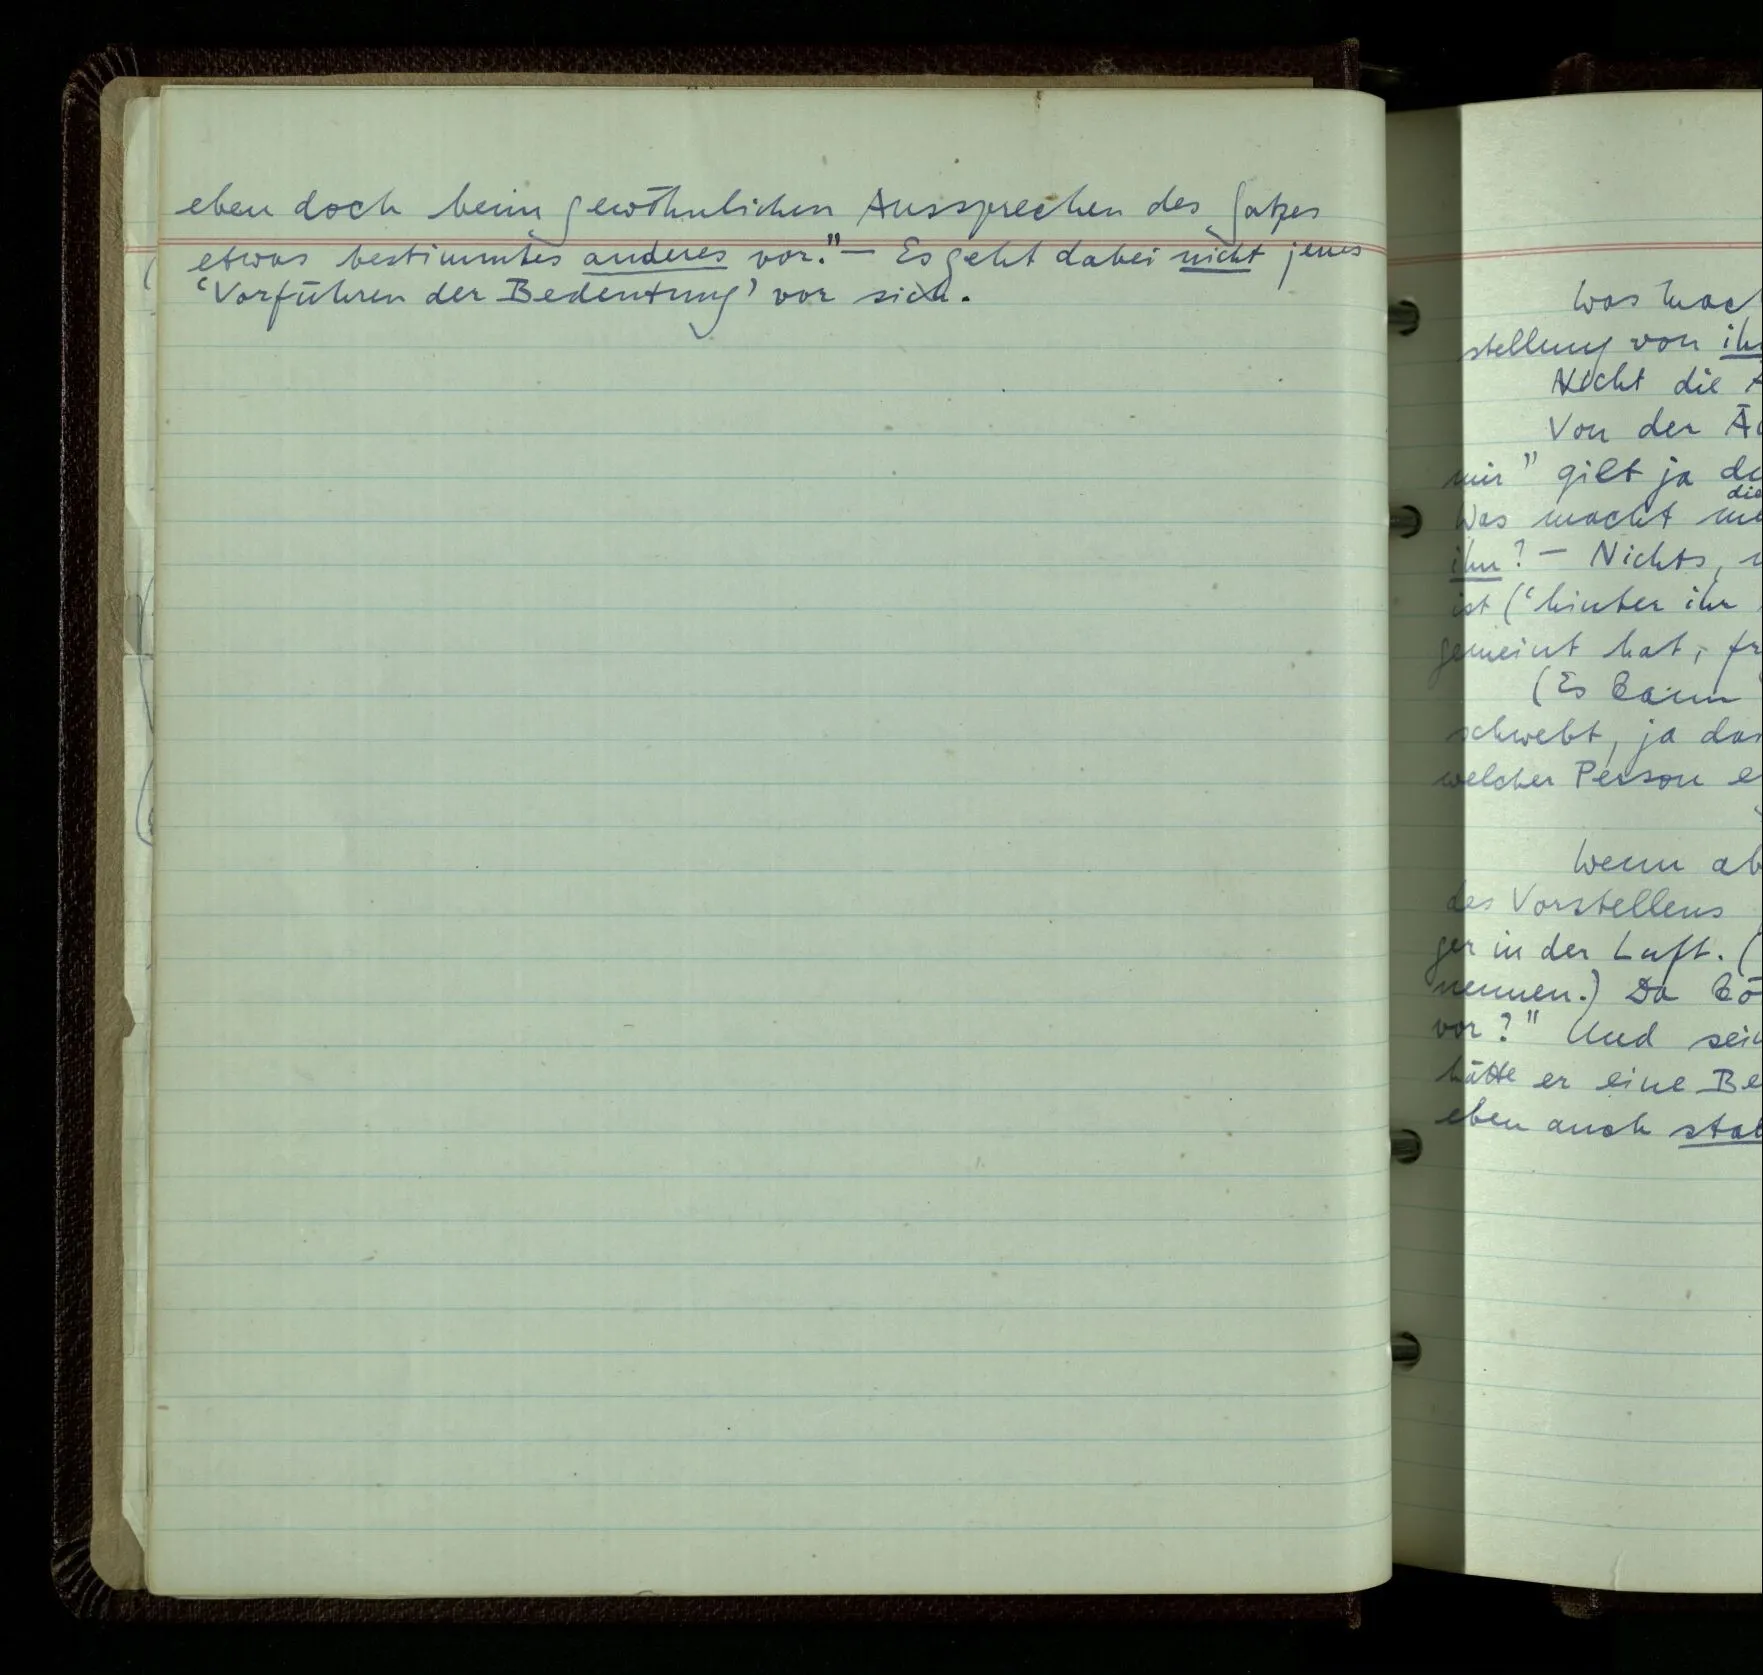 eben doch beim gewöhnlichen Aussprechen des Satzes
etwas bestimmtes anderes vor." — Es geht dabei nicht jenes
'Vorführen der Bedeutung' vor sich.
Was mac
stellung von ih
Nicht die
Von der
mir" gilt ja
die
Was macht
ihn? — Nichts,
ist ('hinter ihr
gemeint hat,
(Es kann
schwebt, ja das
welcher Person
Wenn ab
des Vorstellens
ger in der Luft. (
nennen.) Da kö
vor?" Und sein
hätte er eine Be
eben auch stat